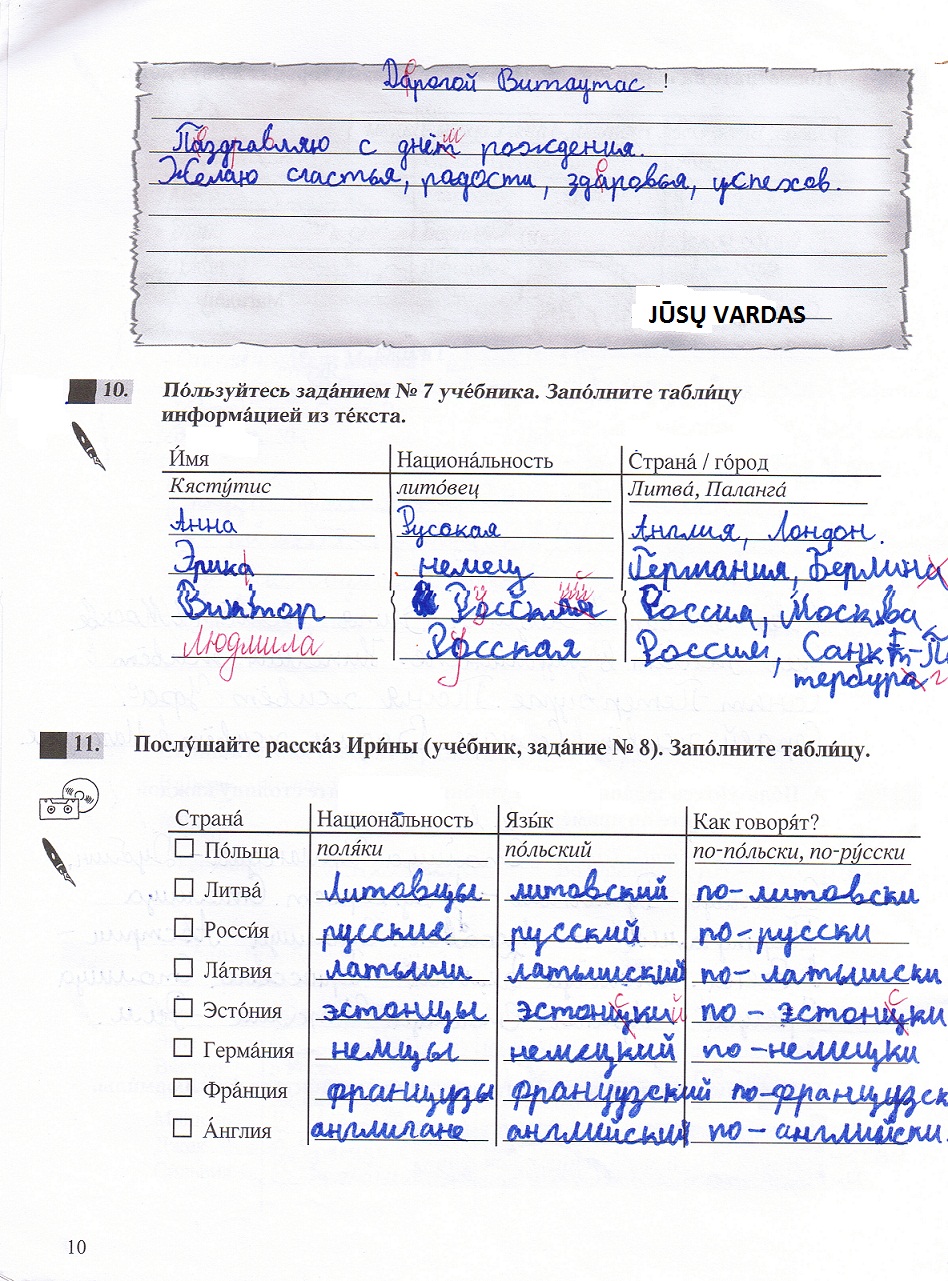 Дарогой Витаутас !
Паздравляю с днём рождения.
Желаю счастья, радости, здаровья, успехов.
JŪSŲ VARDAS
10. По́льзуйтесь зада́нием № 7 уче́бника. Запо́лните табли́цу
информа́цией из те́кста.
И́мя Национа́льность Страна́ / го́род
Кясту́тис лито́вец Литва́, Паланга́
Анна Русская Англия, Лондон.
Эрик немец Германия, Берлин
Виктор Русский Россия, Москва
Людмила Русская Россия, Санкт-Пе
тербург
11. Послу́шайте расска́з Ири́ны (уче́бник, зада́ние № 8). Запо́лните табли́цу.
Страна́ Национа́льность Язы́к Как говоря́т?
По́льша поля́ки по́льский по-по́льски, по-ру́сски
Литва́ Литовцы литовский по-литовски
Росси́я русские русский по-русски
Ла́твия латыши латышский по-латышски
Эсто́ния эстонцы эстонский по-эстонски
Герма́ния немцы немецкий по-немецки
Фра́нция французы французский по-французск
А́нглия англичане английский по-английски.
10